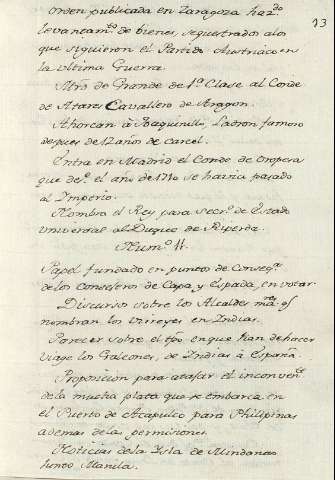 orden publicada en Zaragoza haz.do
levantam.to de bienes, sequestrados a los
que siguieron el Partido Austriaco en
la ultima Guerra.
13
Titº de Grande de 1.ª Clase al Conde
de Atares Cavallero de Aragon.
Ahorcan à Joaquinillo, Ladron famoso
despues de 12 años de carcel.
Entra en Madrid el Conde de Oropesa
que des.e el año de 1710 se havia pasado
al Imperio.
Nombra el Rey para Secr.º de Estado
universal al Duque de Riperda.
Num.º 11.
Papel fundado en puntos de Conseq.ª
de los consejeros de Capa y Espada, en votar.
Discurso sobre los Alcaldes m.res q.e
nombran los virreyes en Indias.
Parecer sobre el tpo en que han de hacer
viage los Galeones, de Indias à España.
Proposicion para atajar el inconven.te
de la mucha plata que se embarca en
el Puerto de Acapulco para Philipinas
ademas de las permisiones.
Noticias de la Isla de Mindanao
junto Manila.